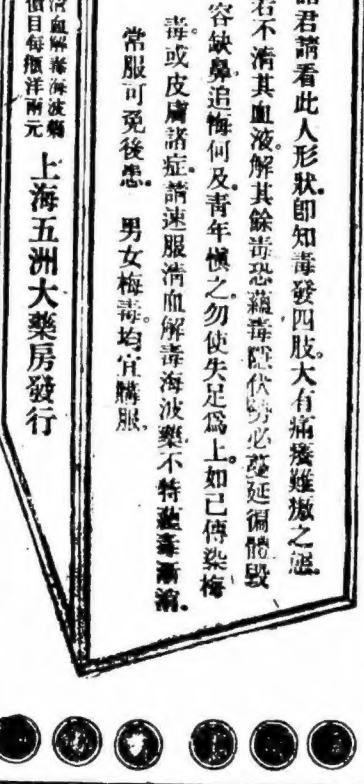 諸君請看此人形狀。卽知毒發四肢。大有痛癢難撤之態。
若不淸其血液。解其餘毒。恐蘊毒隱伏。勢必蔓延徧體。毁
容缺鼻。追悔何及。靑年愼之。勿使失足爲上。如已傳染梅
毒。或皮膚諸症。請速服淸血解毒海波藥。不特蘊毒漸消。
常服可免後患。 男女梅毒。均宜購服。
淸血解毒海波藥
價目每瓶洋兩元
上海五洲大藥房發行